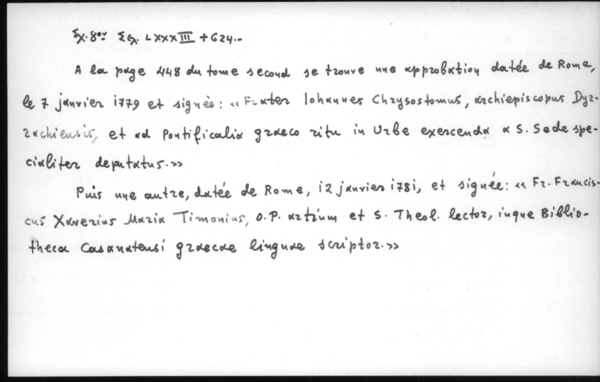 Σχ. 8ον Σελ. LXXXIII + 624.-
A la page 448 du tome second se trouve une approbation datée de Rome,
le 7 janvier 1779 et signée: «Frater Iohannes Chrysostomus, archiepiscopus Dyr-
rachiensis, et ad Pontificalia graeco ritu in Urbe exercenda a S. Sede spe-
cialiter deputatus.»
Puis une autre, datée de Rome, 12 janvier 1781, et signée: «Fr. Francis-
cus Xaverius Maria Timonius, O.P. artium et S. Theol. lector, inque Biblio-
theca Casanatensi graecae linguae scriptor.»